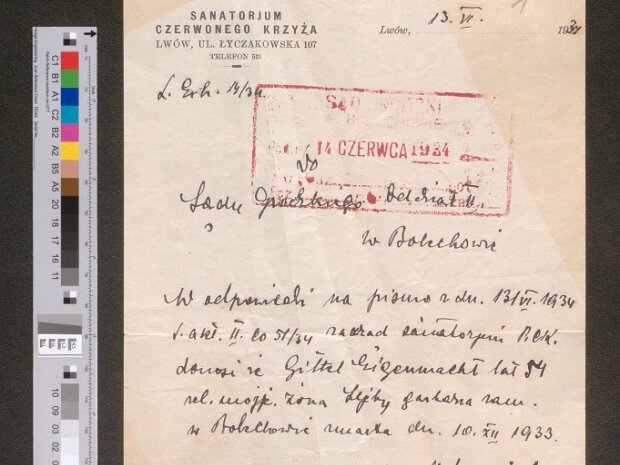 SANATORJUM
CZERWONEGO KRZYŻA
LWÓW, UL. ŁYCZAKOWSKA 107
TELEFON 521
Lwów, 13. VI. 1934
L. Exh. 14/34.
SĄD GRODZKI
14 CZERWCA 1934
do
Sądu Grodzkiego Oddział II
w Bolechowie
W odpowiedzi na pismo z dn. 13/VI. 1934
L. akt. II. Co 51/34 zarząd sanatorjum P.C.K.
donosi że Gittel Eigenmacht lat 54
rel. mojż. żona Lejby garbarza zam.
w Bolechowie zmarła dn. 10. XII 1933.
C1
B1
A1
C2
B2
A2
B5
A5
20
18
17
16
11
10
09
03
02